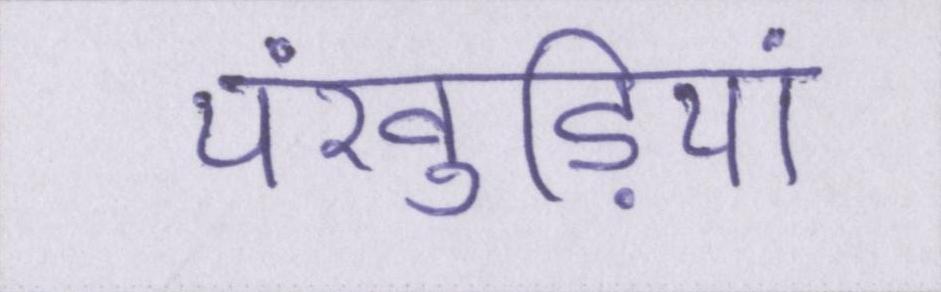 पंखुड़ियां